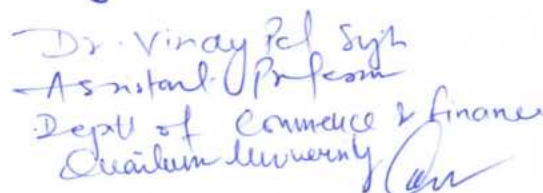 Dr. Vinay Pal Singh
Assistant Professor
Deptt of Commerce & Finance
Quantum University